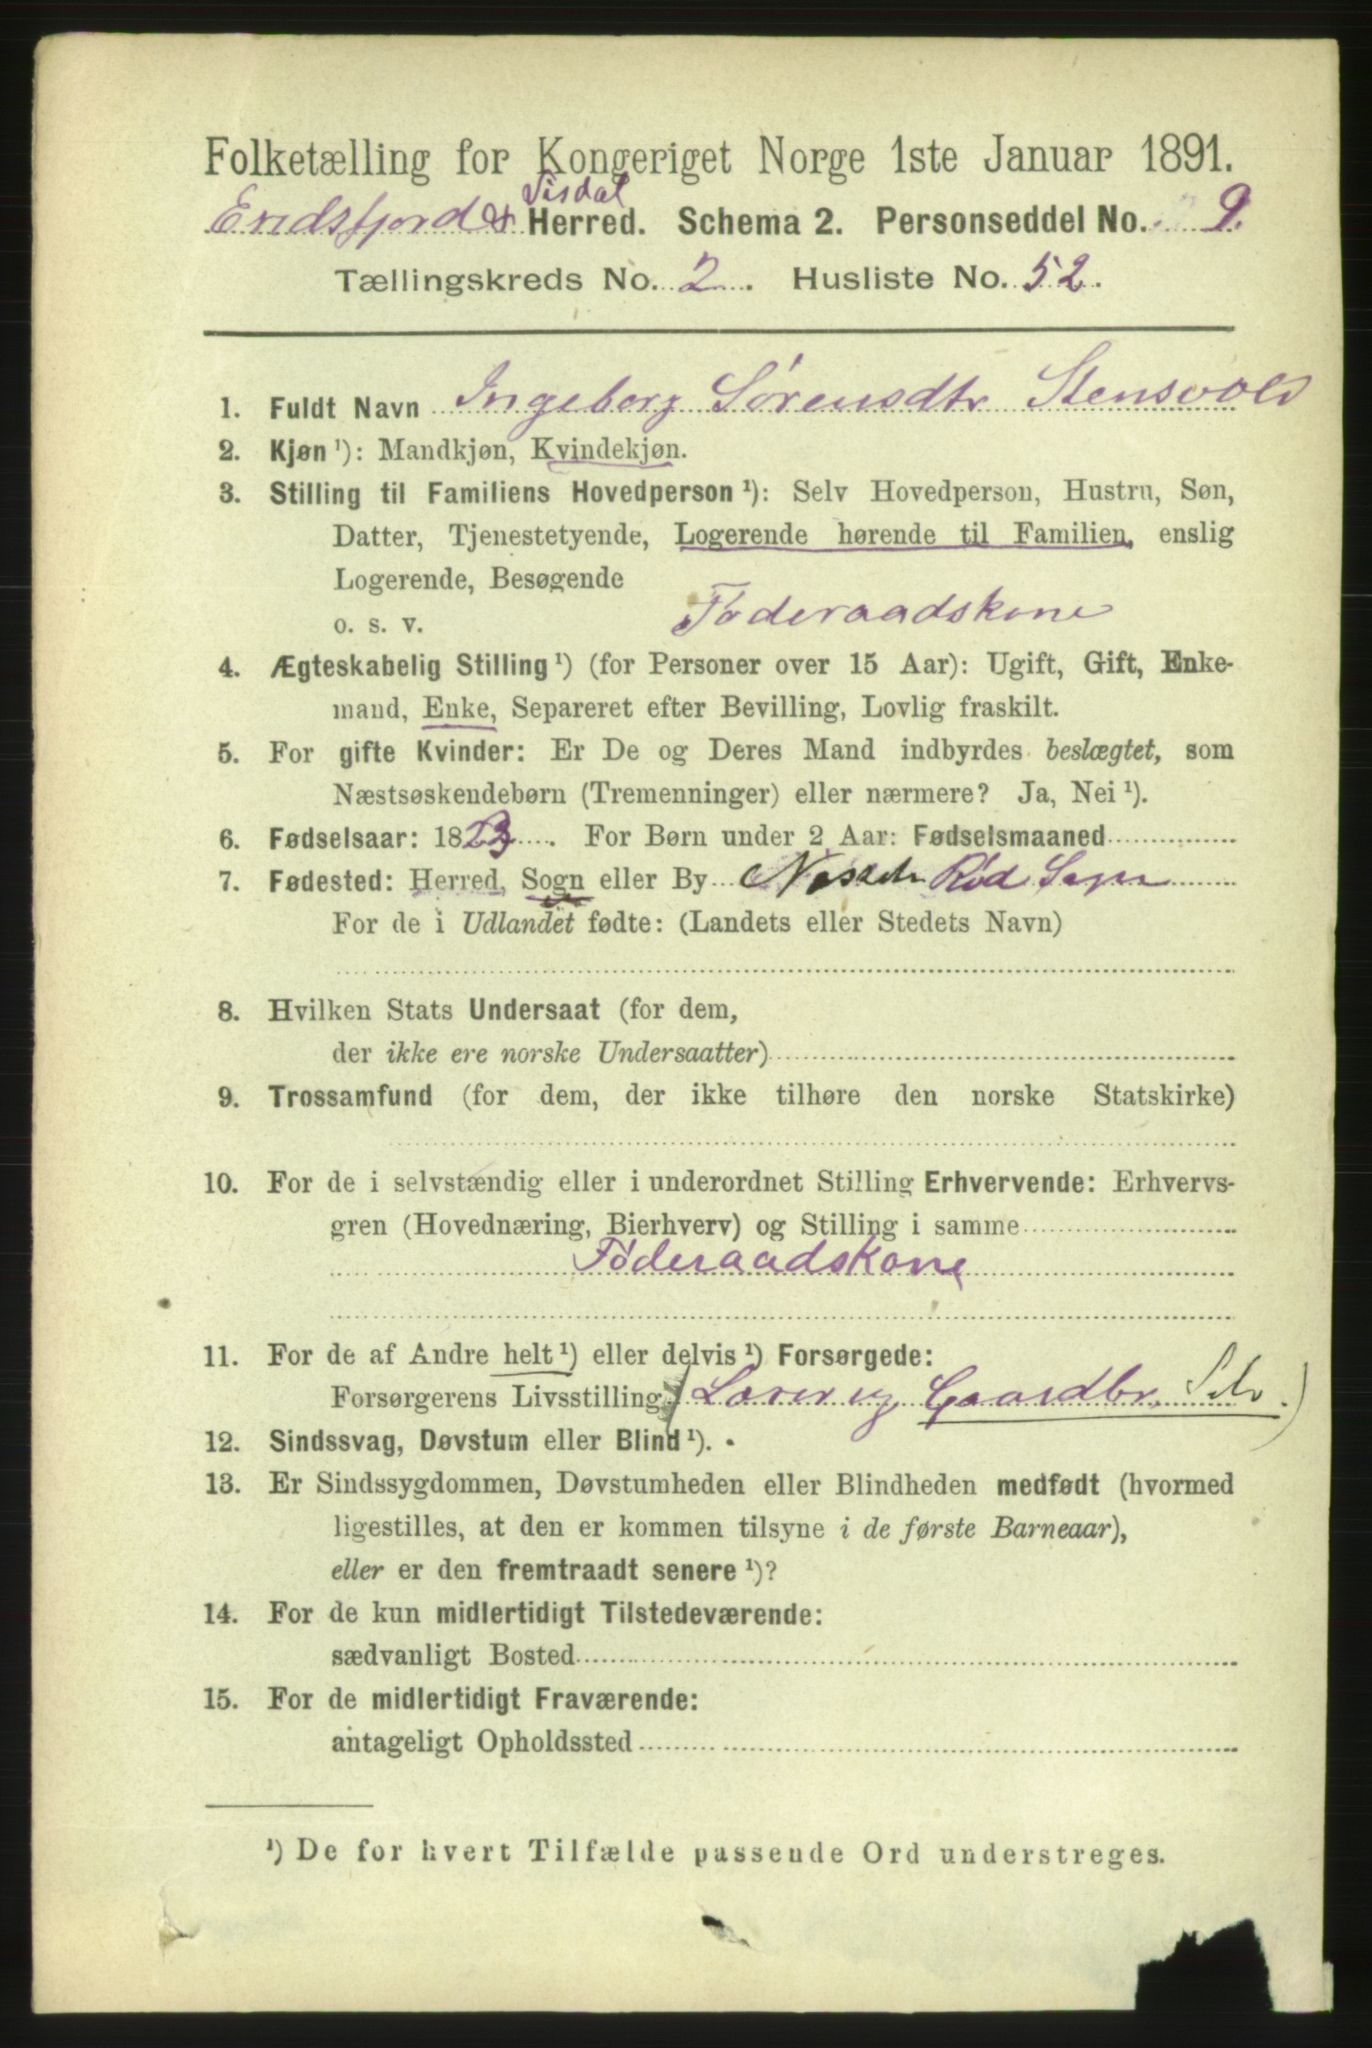 Folketælling for Kongeriget Norge 1ste Januar 1891.
Eridsfjord & Visdal Herred. Schema 2. Personseddel No. 9.
Tællingskreds No. 2. Husliste No. 52.
1. Fuldt Navn Ingeborg Sørensdtr Stensvold
2. Kjøn ¹): Mandkjøn, Kvindekjøn.
3. Stilling til Familiens Hovedperson ¹): Selv Hovedperson, Hustru, Søn,
Datter, Tjenestetyende, Logerende hørende til Familien, enslig
Logerende, Besøgende
o. s. v. Føderaadskone
4. Ægteskabelig Stilling ¹) (for Personer over 15 Aar): Ugift, Gift, Enke-
mand, Enke, Separeret efter Bevilling, Lovlig fraskilt.
5. For gifte Kvinder: Er De og Deres Mand indbyrdes beslægtet, som
Næstsøskendebørn (Tremenninger) eller nærmere? Ja, Nei ¹).
6. Fødselsaar: 1823. For Børn under 2 Aar: Fødselsmaaned
7. Fødested: Herred, Sogn eller By Nesset Rød Sogn
For de i Udlandet fødte: (Landets eller Stedets Navn)
8. Hvilken Stats Undersaat (for dem,
der ikke ere norske Undersaatter)
9. Trossamfund (for dem, der ikke tilhøre den norske Statskirke)
10. For de i selvstændig eller i underordnet Stilling Erhvervende: Erhvervs-
gren (Hovednæring, Bierhverv) og Stilling i samme
Føderaadskone
11. For de af Andre helt ¹) eller delvis ¹) Forsørgede:
Forsørgerens Livsstilling (Lærer og Gaardbr. Selv.)
12. Sindssvag, Døvstum eller Blind ¹).
13. Er Sindssygdommen, Døvstumheden eller Blindheden medfødt (hvormed
ligestilles, at den er kommen tilsyne i de første Barneaar),
eller er den fremtraadt senere ¹)?
14. For de kun midlertidigt Tilstedeværende:
sædvanligt Bosted
15. For de midlertidigt Fraværende:
antageligt Opholdssted
¹) De for hvert Tilfælde passende Ord understreges.